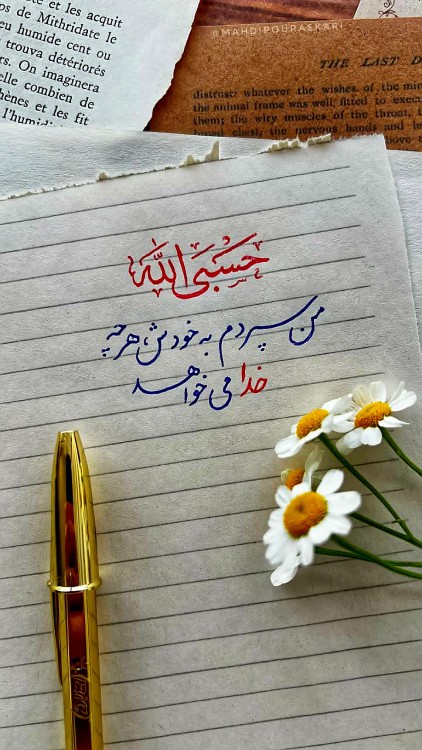 et les acquit
ps de Mithridate le
eu humide cent ou
trouva détériorés
rs. On imaginera
elle combien de
hènes et les fit
l'humidi
@MAHDIPOURASKARI
THE LAST D
distrust: whatever the wishes of the min
the animal frame was well fitted to execu
them; the wiry muscles of the throat, t
broad chest, the nervous hands and le
above
حَسبیَ الله
من سپردم به خودش، هرچه
خدا می خواهد